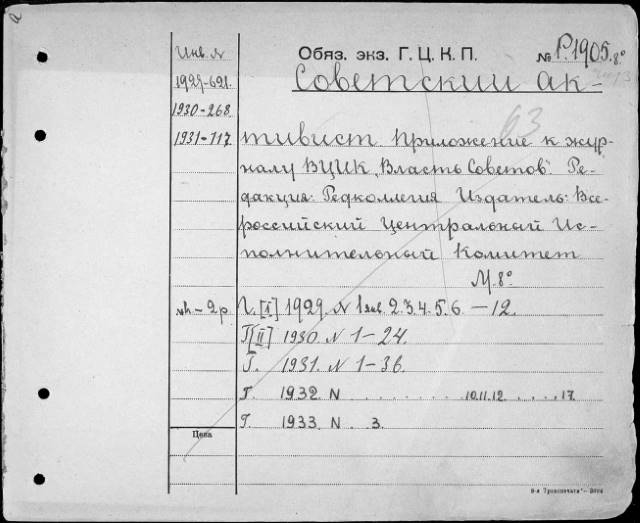 Инв. №
1929-621.
1930-268.
1931-117
мн.-2р.
Цена
Обяз. экз. Г. Ц. К. П.
№ Р.1905.8°
Советский ак-
63
тивист. Приложение к жур-
налу ВЦИК „Власть Советов". Ре-
дакция: Редколлегия. Издатель: Все-
российский Центральный Ис-
полнительный Комитет
М. 8°
Г. [I] 1929. N 1 янв. 2. 3. 4. 5. 6. — 12.
Г. [II] 1930. N 1-24.
Г. 1931. N 1-36.
Г. 1932 N . . . . . . . . . 10. 11. 12. . . . . 17.
Г. 1933. N . . 3.